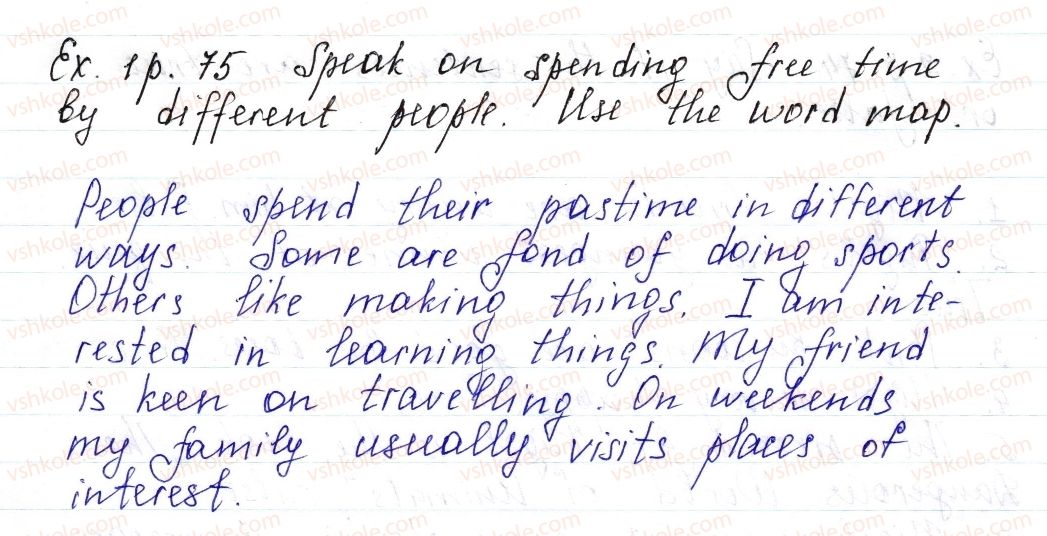 Ex. 1 p. 75 Speak on spending free time
by different people. Use the word map.
People spend their pastime in different
ways. Some are fond of doing sports.
Others like making things. I am inte-
rested in learning things. My friend
is keen on travelling. On weekends
my family usually visits places of
interest.